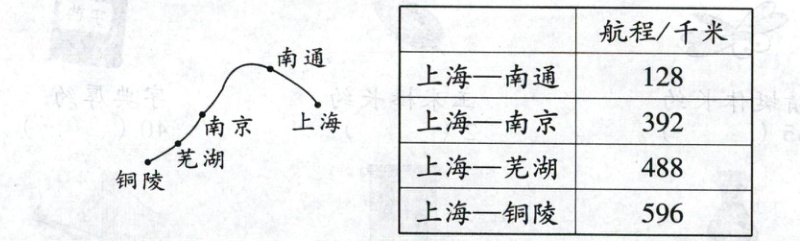 南通
南京
上海
芜湖
铜陵
航程/千米
上海—南通 128
上海—南京 392
上海—芜湖 488
上海—铜陵 596